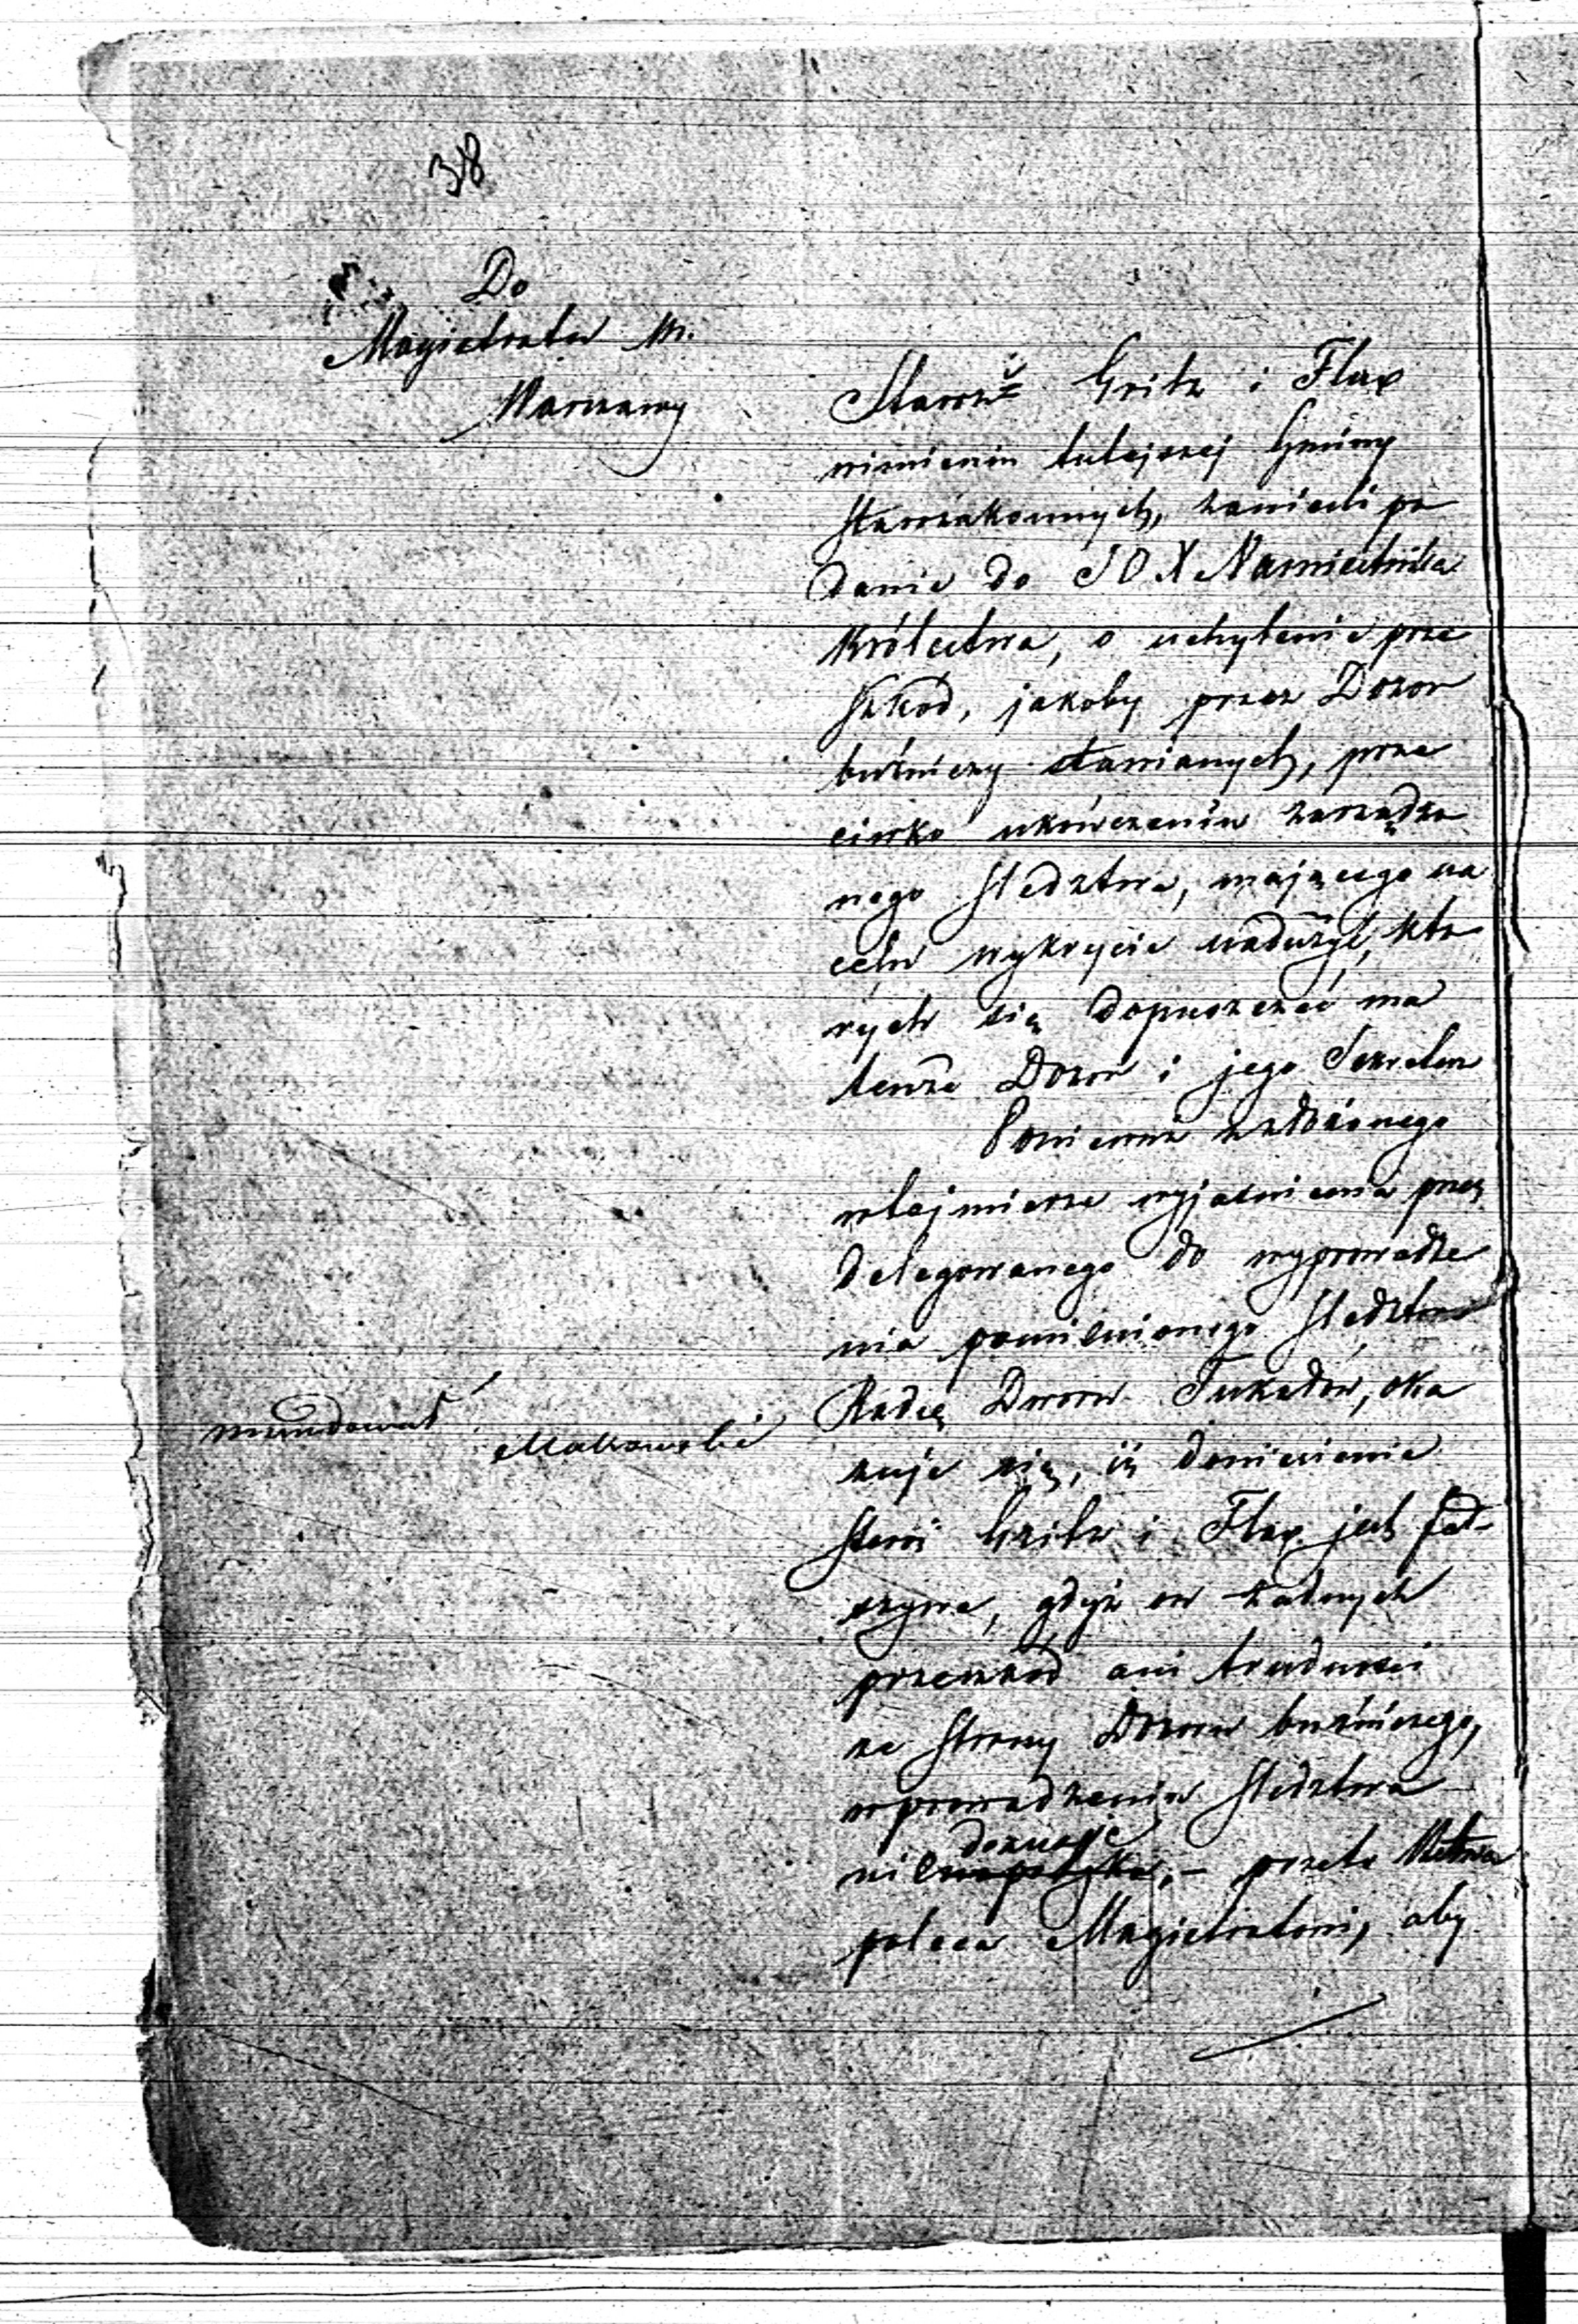 318
Do
Magistratu M.
Warszawy
Starsi Gritz i Flax
wimieniu tutejszej Gminy
Starozakonnych, zanieśli po
danie do JO X Namiestnika
Królestwa, o uchylenie prze
szkód, jakoby przez Dozor
bużniczy stawianych, prze
ciwko ukończeniu zarządzo
nego śledztwa, mającego na
celu wykrycie nadużyć, któ
rych się dopuszczać ma
tenże Dozór i jego Sekretarz
Ponieważ z złożonego
wtejmierze wyjaśnienia przez
Delegowanego do wyprowadze
nia pomienionego śledztwa
Radcę Dworu okazuje, oka
zuje się, iż doniesienie
Starsi Gritz i Flax jest fał-
szywe, gdyż on żadnych
przeszkód ani trudności
ze strony Dozoru bużniczego,
wprowadzeniu śledztwa
nie doznaje, – przeto
poleca Magistratowi, aby
mundował
Makowski